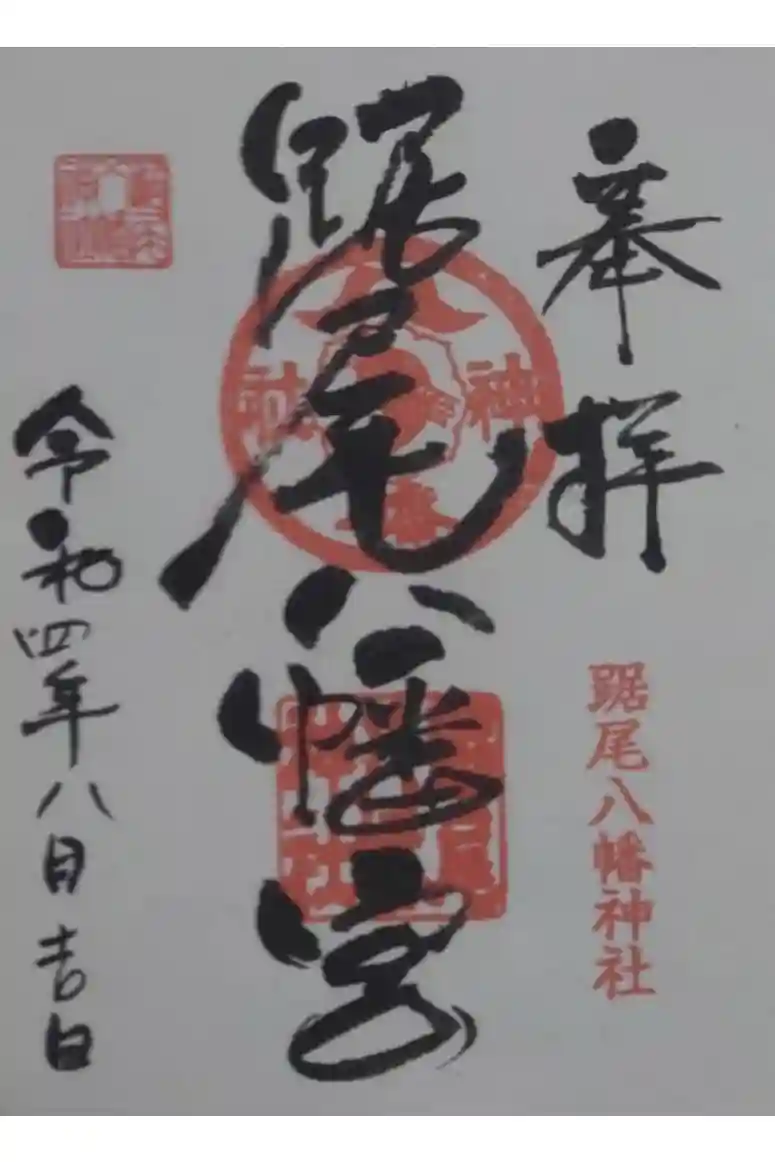 奉拝
踞尾八幡神社
踞尾八幡宮
八幡神社
令和四年八月吉日